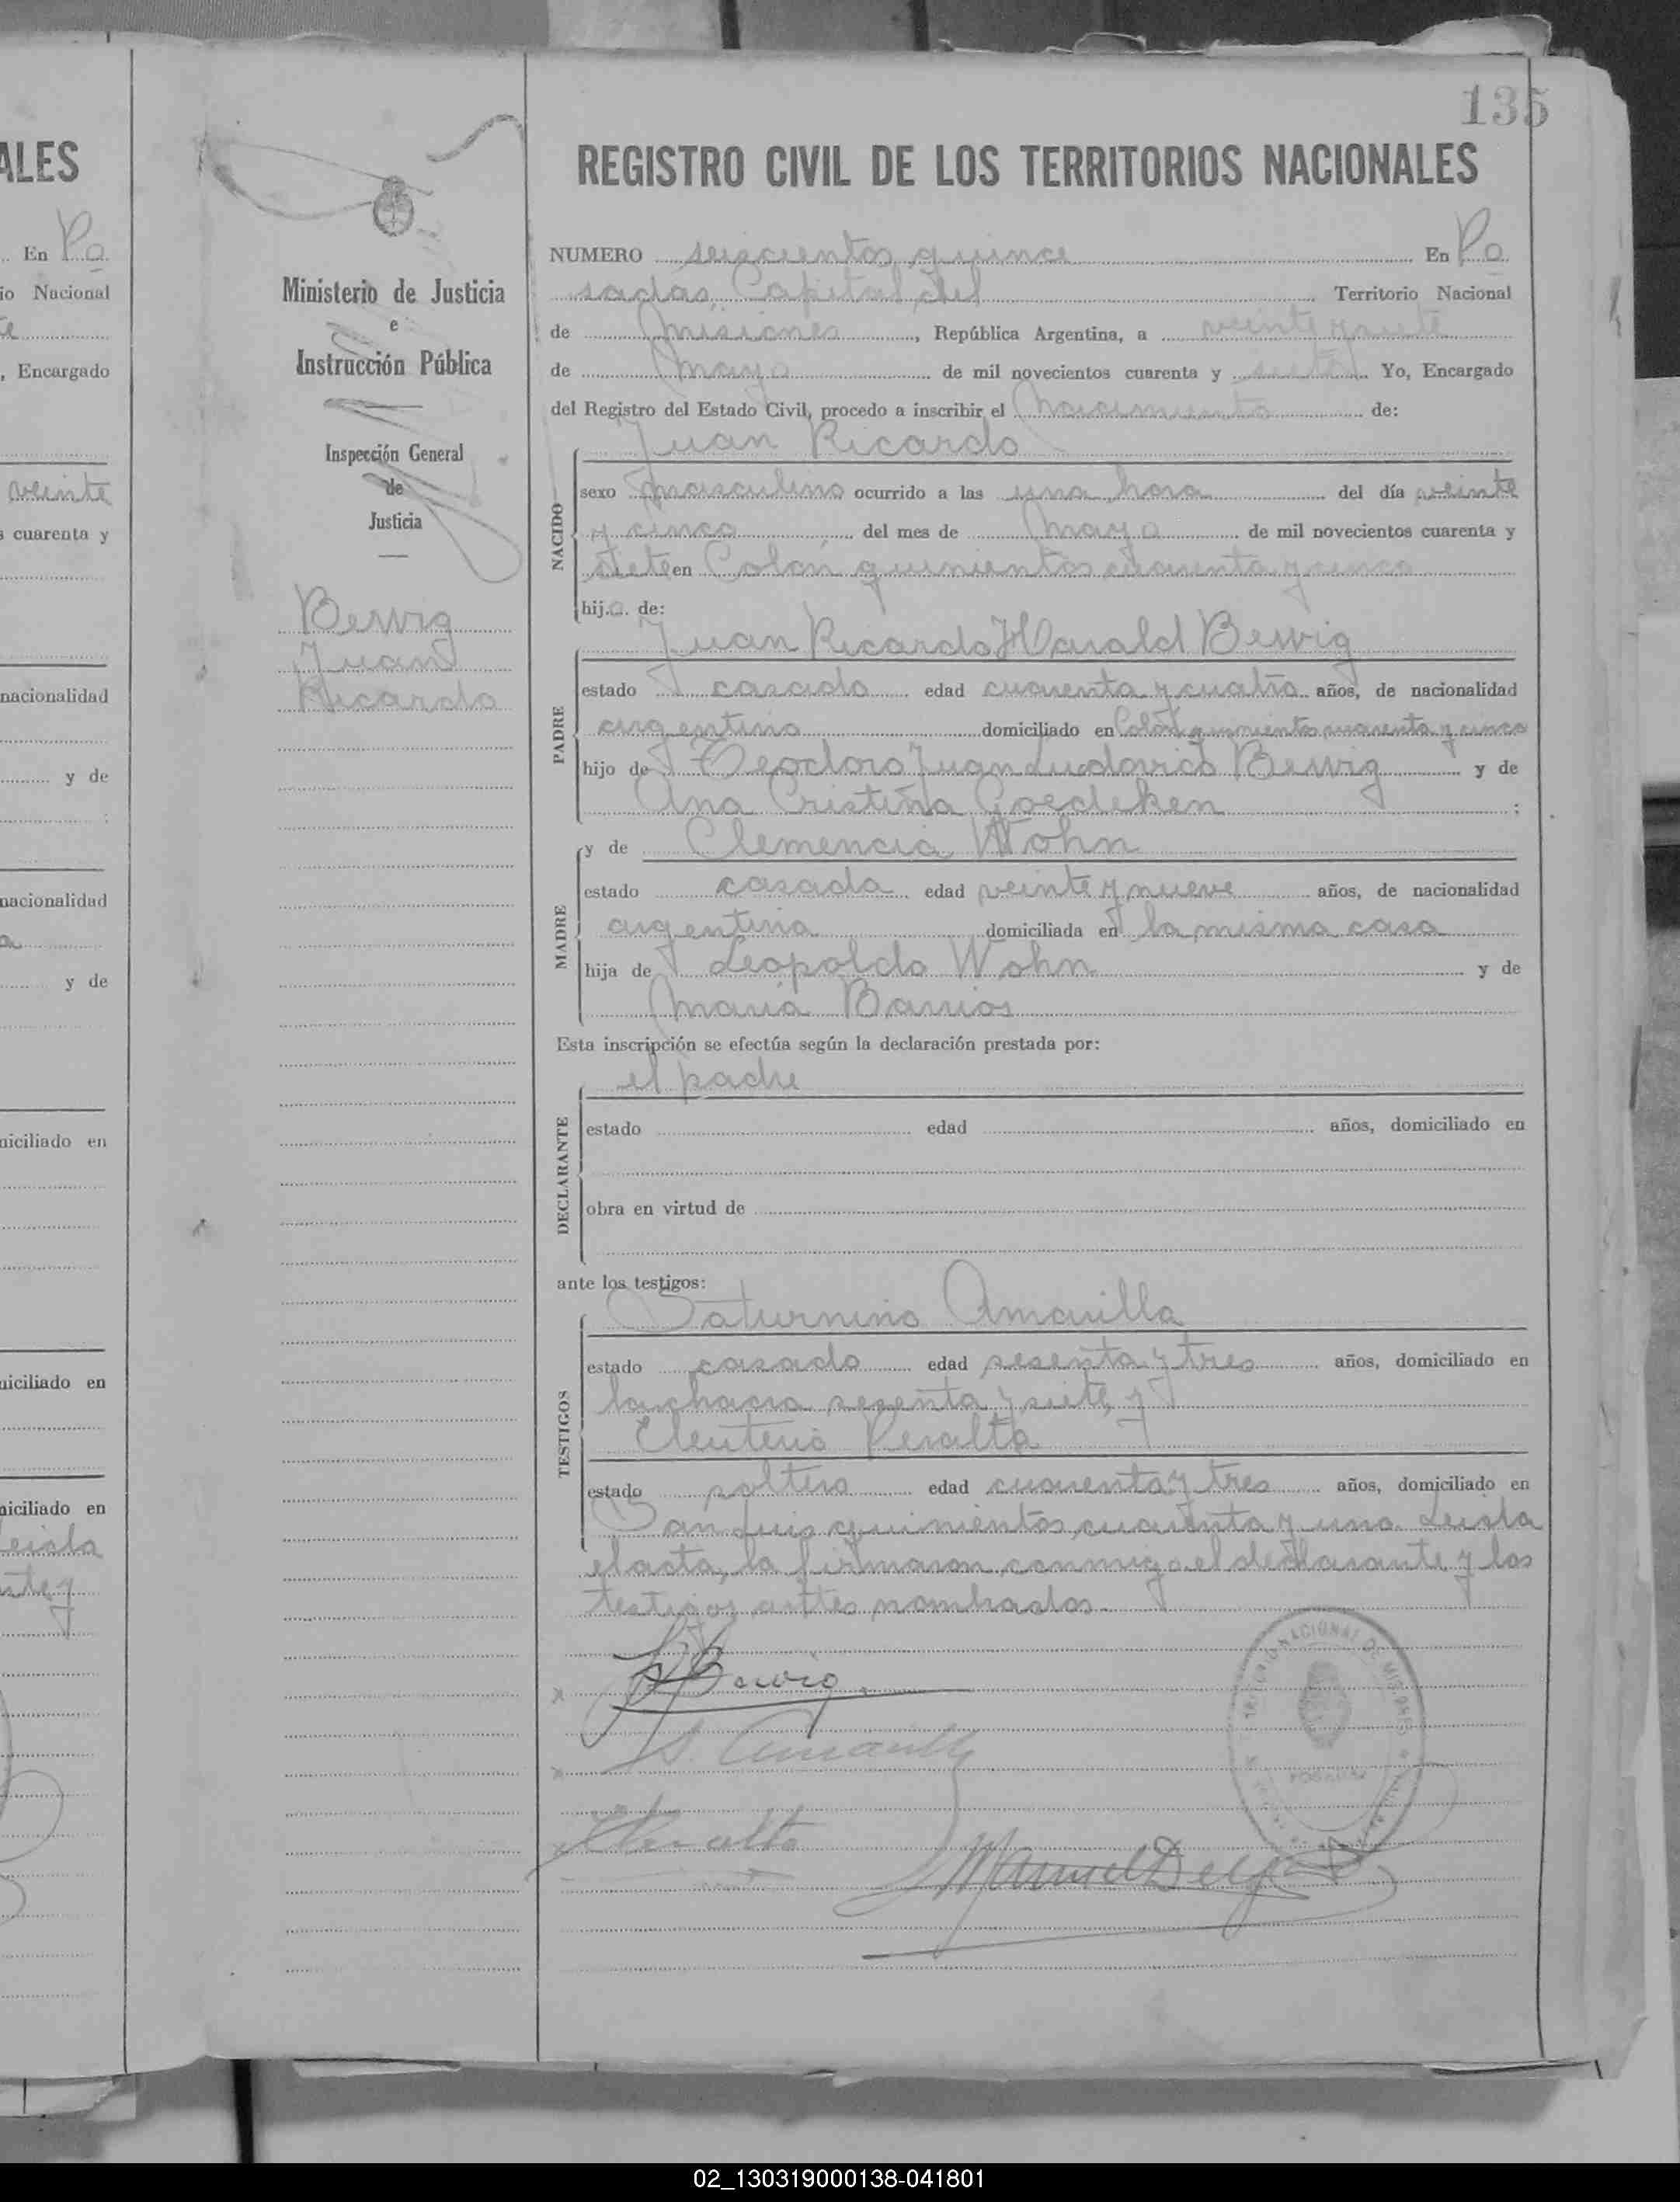 135
ALES
REGISTRO CIVIL DE LOS TERRITORIOS NACIONALES
En Po
io Nacional
, Encargado
veinte
s cuarenta y
nacionalidad
y de
nacionalidad
y de
niciliado en
niciliado en
niciliado en
Leida
Ministerio de Justicia
e
Instrucción Pública
Inspección General
de
Justicia
Bewig
Juan
Ricardo
NUMERO seiscientos quince En Po
sadas, Capital del Territorio Nacional
de Misiones, República Argentina, a veinte y siete
de Mayo de mil novecientos cuarenta y siete Yo, Encargado
del Registro del Estado Civil, procedo a inscribir el Nacimiento de:
Juan Ricardo
NACIDO
sexo masculino ocurrido a las una hora del día veinte
y cinco del mes de Mayo de mil novecientos cuarenta y
siete en Colón quinientos cuarenta y cinco
hijo de:
Juan Ricardo Harald Bewig
PADRE
estado casado edad cuarenta y cuatro años, de nacionalidad
argentino domiciliado en Colón quinientos cuarenta y cinco
hijo de Teodoro Juan Ludovico Bewig y de
Ana Cristina Goedeken ;
y de Clemencia Wohn
MADRE
estado casada edad veinte y nueve años, de nacionalidad
argentina domiciliada en la misma casa
hija de Leopoldo Wohn y de
Maria Barrios
Esta inscripción se efectúa según la declaración prestada por:
el padre
DECLARANTE
estado edad años, domiciliado en
obra en virtud de
ante los testigos:
Saturnino Amarilla
TESTIGOS
estado casado edad sesenta y tres años, domiciliado en
la chacra sesenta y siete, y
Eleuterio Peralta
estado soltero edad cuarenta y tres años, domiciliado en
San Luis quinientos cuarenta y uno. Leida
el acta, la firmaron conmigo el declarante y los
testigos antes nombrados.
Bewig
S. Amarilla
Peralta
TERRITORIO NACIONAL DE MISIONES
POSADAS
02_130319000138-041801